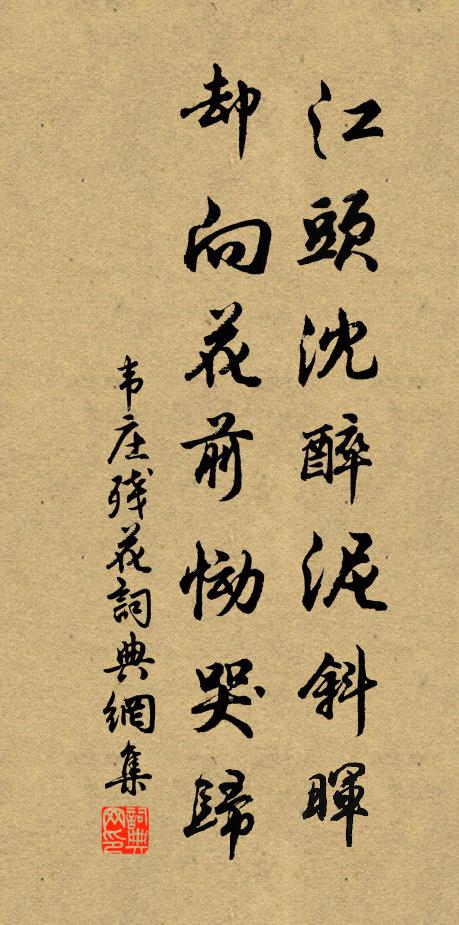 江頭沈醉泥斜暉
却向花前慟哭歸
韦庄残花詞典網集
詞典网印